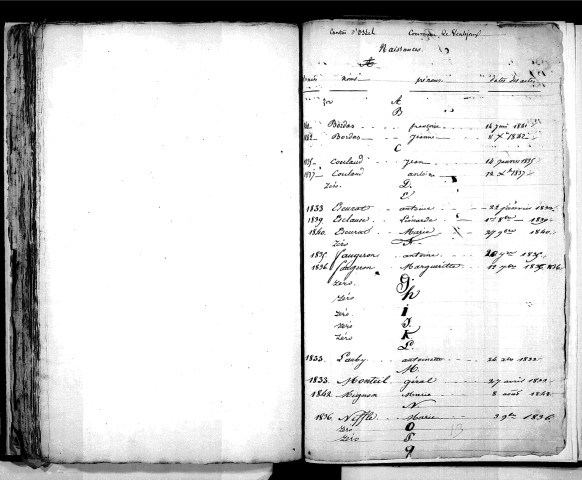 Canton d'Ussel Commune de Ventejoux
Naissances
A
noms prénoms dates des actes
Zéro A
B
Bordas françoise 14 juin 1841
1842 Bordas jeanne 8 Xbre 1842
C
1835 Coulaud jean 14 janvier 1835
1837 Coulaud antoine 12 Xbre 1837
Zéro D.
E
1833 antoine 22 février 1833
1839 Esclause Léonarde 1er 8bre 1839
1840 Marie 27 9bre 1840
Zéro F.
1835 Faugeron antoine 20 9bre 1835
1836 Faugeron Marguerite 11 9bre 1836
Zéro G.
Zéro h
Zéro i
Zéro J.
Zéro K
L.
1833 Lauby antoinette 24 Xbre 1833
M.
1833 Monteil géral 27 avril 1833
1842 Mignon Marie 8 août 1842
N.
1836 Niffle Marie 3 9bre 1836
Zéro O
Zéro P
13 q